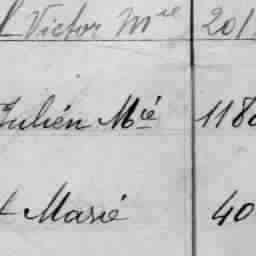 Victor Mie 201
Julién Mié 118
t Marié 40